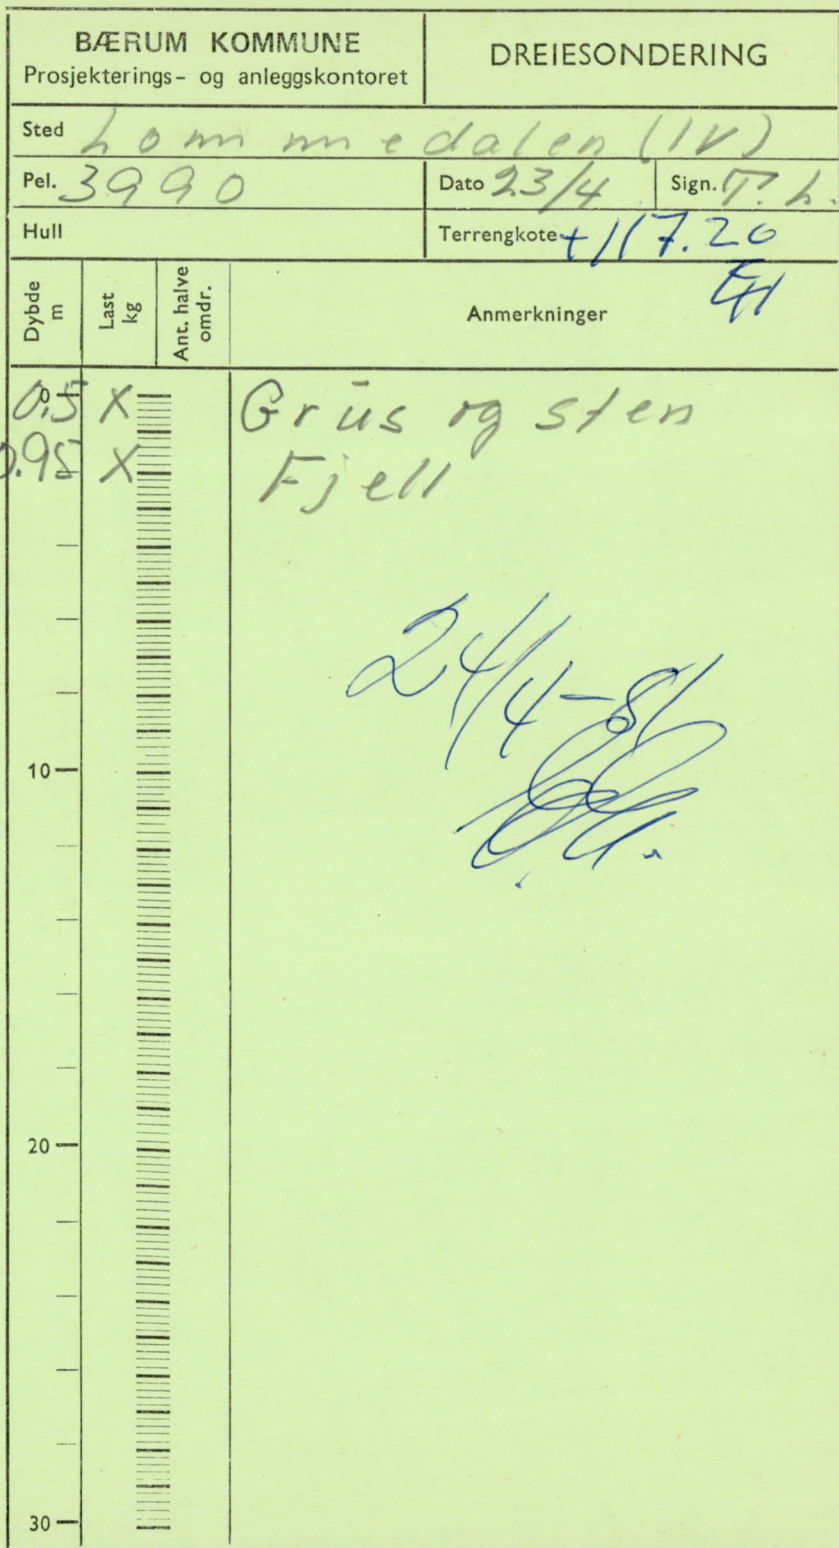 BÆRUM KOMMUNE
Prosjekterings- og anleggskontoret
DREIESONDERING
Sted Lommedalen (IV)
Pel. 3990
Dato 23/4
Sign. T. L.
Hull
Terrengkote +117.20
EH
Dybde m
Last kg
Ant. halve omdr.
Anmerkninger
0
0,5 X Grus og sten
0.95 X Fjell
24/4-81
10
20
30